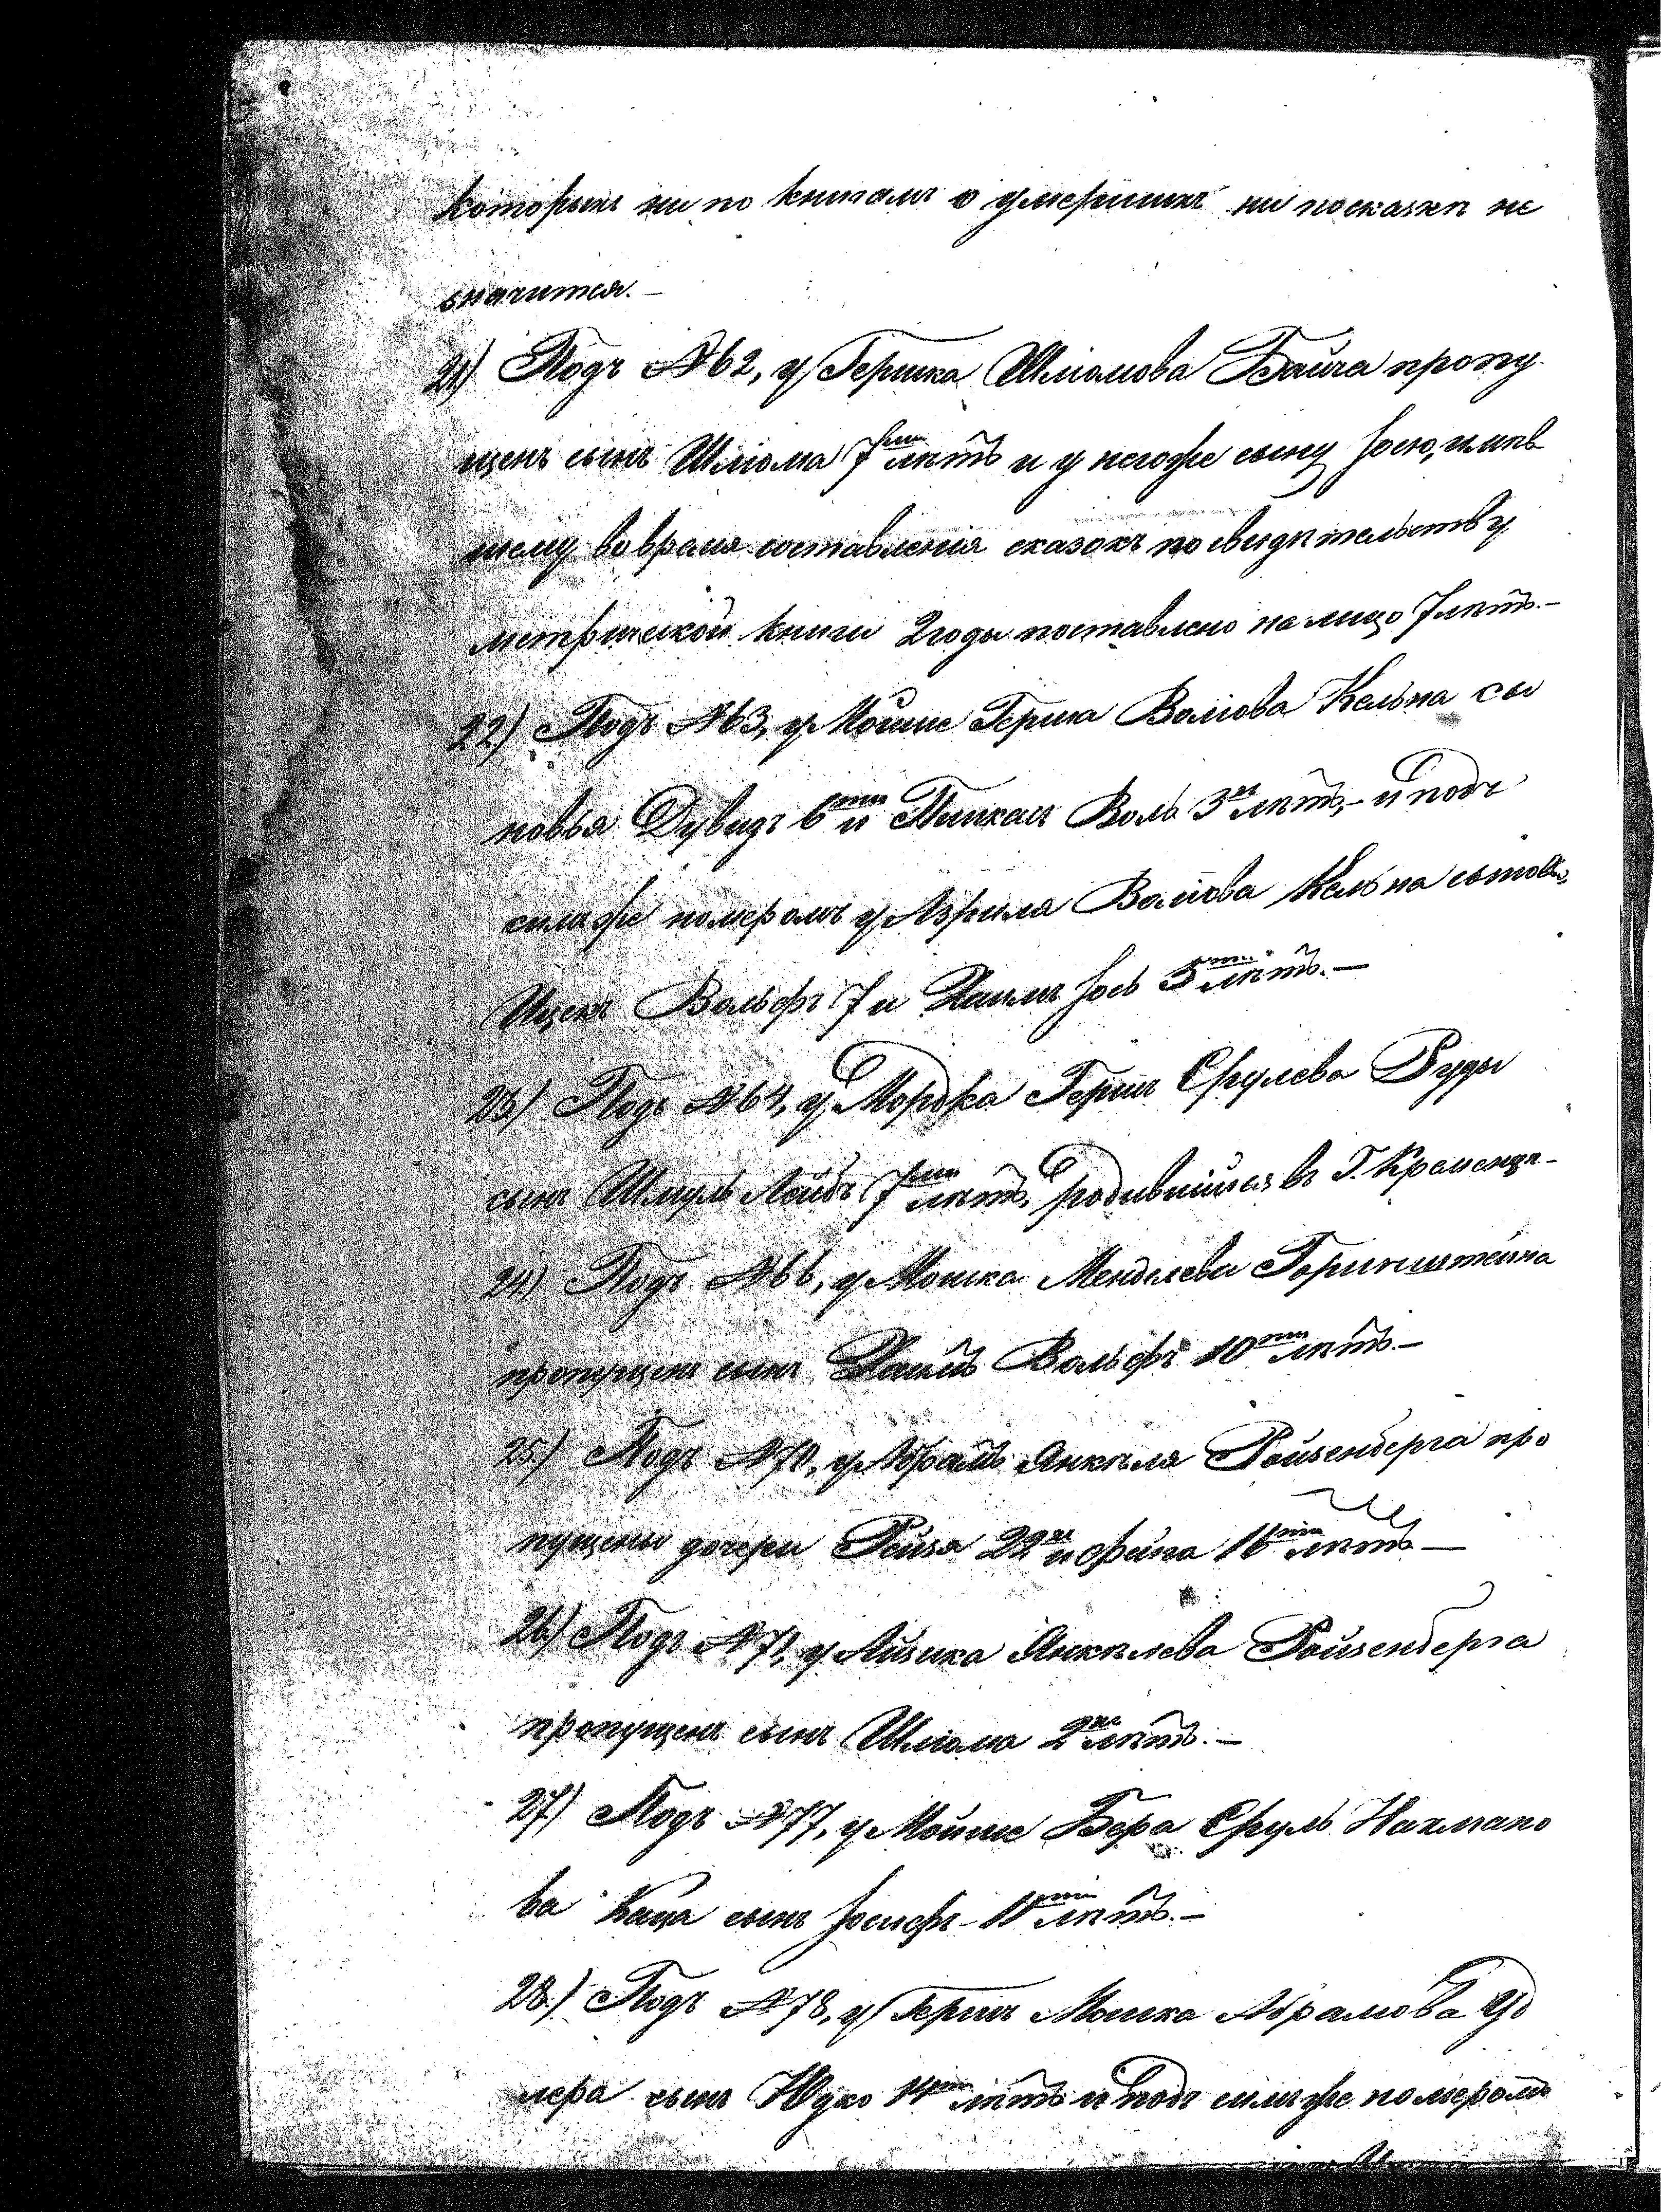 которыхъ ни по книгамъ о умершихъ ни посказкѣ не
значится. –
21) Подъ № 62, у Гершка Шліомова Байча пропу
щенъ сынъ Шліома 7ми лѣтъ и у негоже сыну Іосю, имѣв
шему во время составленія сказокъ по свидѣтельству
метрической книги 2 годы поставлено на лицо 7 лѣтъ. –
22) Подъ № 63, у Мойше Герша Волiова Кельна сы
новья Дувидъ 6ти и Пинкасъ Воль 3хъ лѣтъ, – и подъ
симъ же номеромъ у Азриля Волiова Кельна сынов.
Ицекъ Вольфъ 7 и Хаимъ Іось 5ти лѣтъ. –
23) Подъ № 64, у Мордка Гершъ Срулева Руды
сынъ Шмуль Лейбъ 7ми лѣтъ, родившійся въ Г. Кременцѣ –
24) Подъ № 66, у Мошка Менделева Горинштейна
пропущенъ сынъ Хаимъ Вольфъ 10ти лѣтъ. –
25.) Подъ № 70, у Абрамъ Янкѣля Ройзенберга про
пущены дочери Рейза 22хъ и Фейга 16ти лѣтъ –
26.) Подъ № 71, у Айзика Янкѣлева Ройзенберга
пропущенъ сынъ Шліома 2хъ лѣтъ. –
27) Подъ № 77, у Мойше Бера Сруль Нахмано
ва Каца сынъ Іосифъ 10ти лѣтъ. –
28.) Подъ № 78, у Гершъ Мошка Абрамова
лера сынъ Юдко 14ти лѣтъ и подъ симъ же номеромъ